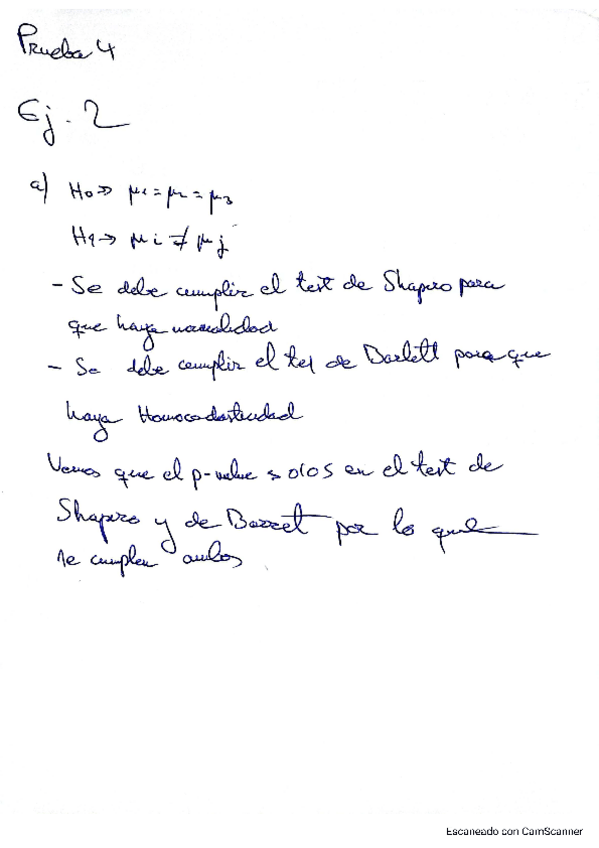 Prueba 4
Ej. 2
a) H0 => μ1 = μ2 = μ3
H1 -> μi ≠ μj
- Se debe cumplir el test de Shapiro para
que haya normalidad
- Se debe cumplir el tet de Barlett para que
haya Homocedasticidad
Vemos que el p-value > 0'05 en el test de
Shapiro y de Barret por lo que
se cumplen ambos
Escaneado con CamScanner